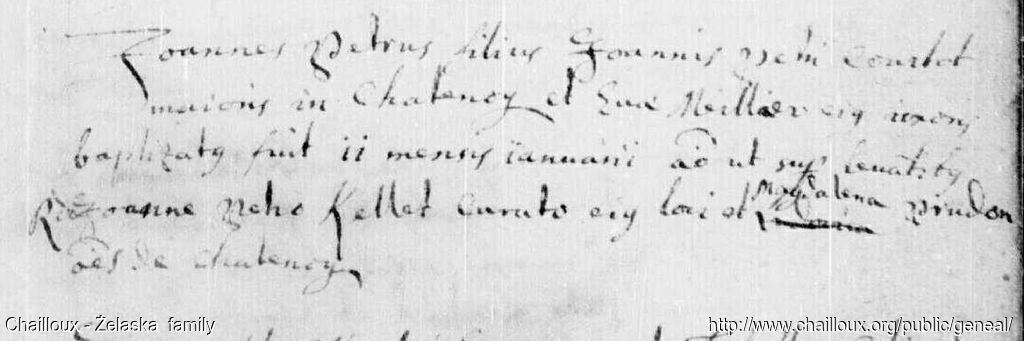 Joannes Petrus filius Joannis Petri Courtot
maioris in Chatenoy et Evæ Meillier eiꝯ uxoris
baptizatꝯ fuit ii mensis ianuarii aō ut sup levātibꝯ
Joanne Petro Rellet Curato eiꝯ loci et Magdalena Prudon
oēs de Chatenoy
Chailloux - Żelaska family
http://www.chailloux.org/public/geneal/